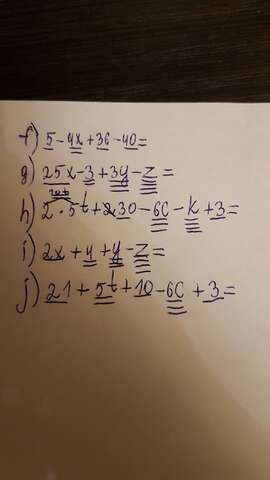 f) 5-4x+36-40=
g) 25x-3+3y-z=
10t
h) 2·5t+30-6c-k+3=
i) 2x+4+y-z=
j) 21+5t+10-6c+3=